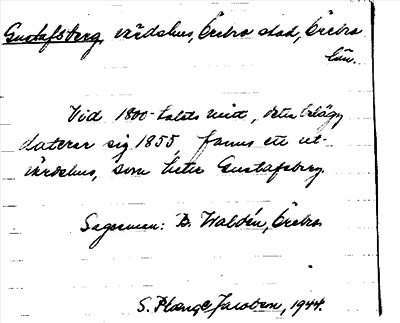 Gustafsberg, värdshus, Örebro stad, Örebro
län.
Vid 1800-talets mitt, detta belägg
daterar sig 1855, fanns ett ut-
värdshus, som hette Gustafsberg.
Sagesman: B. Waldén, Örebro.
S. Jacobson, 1944.